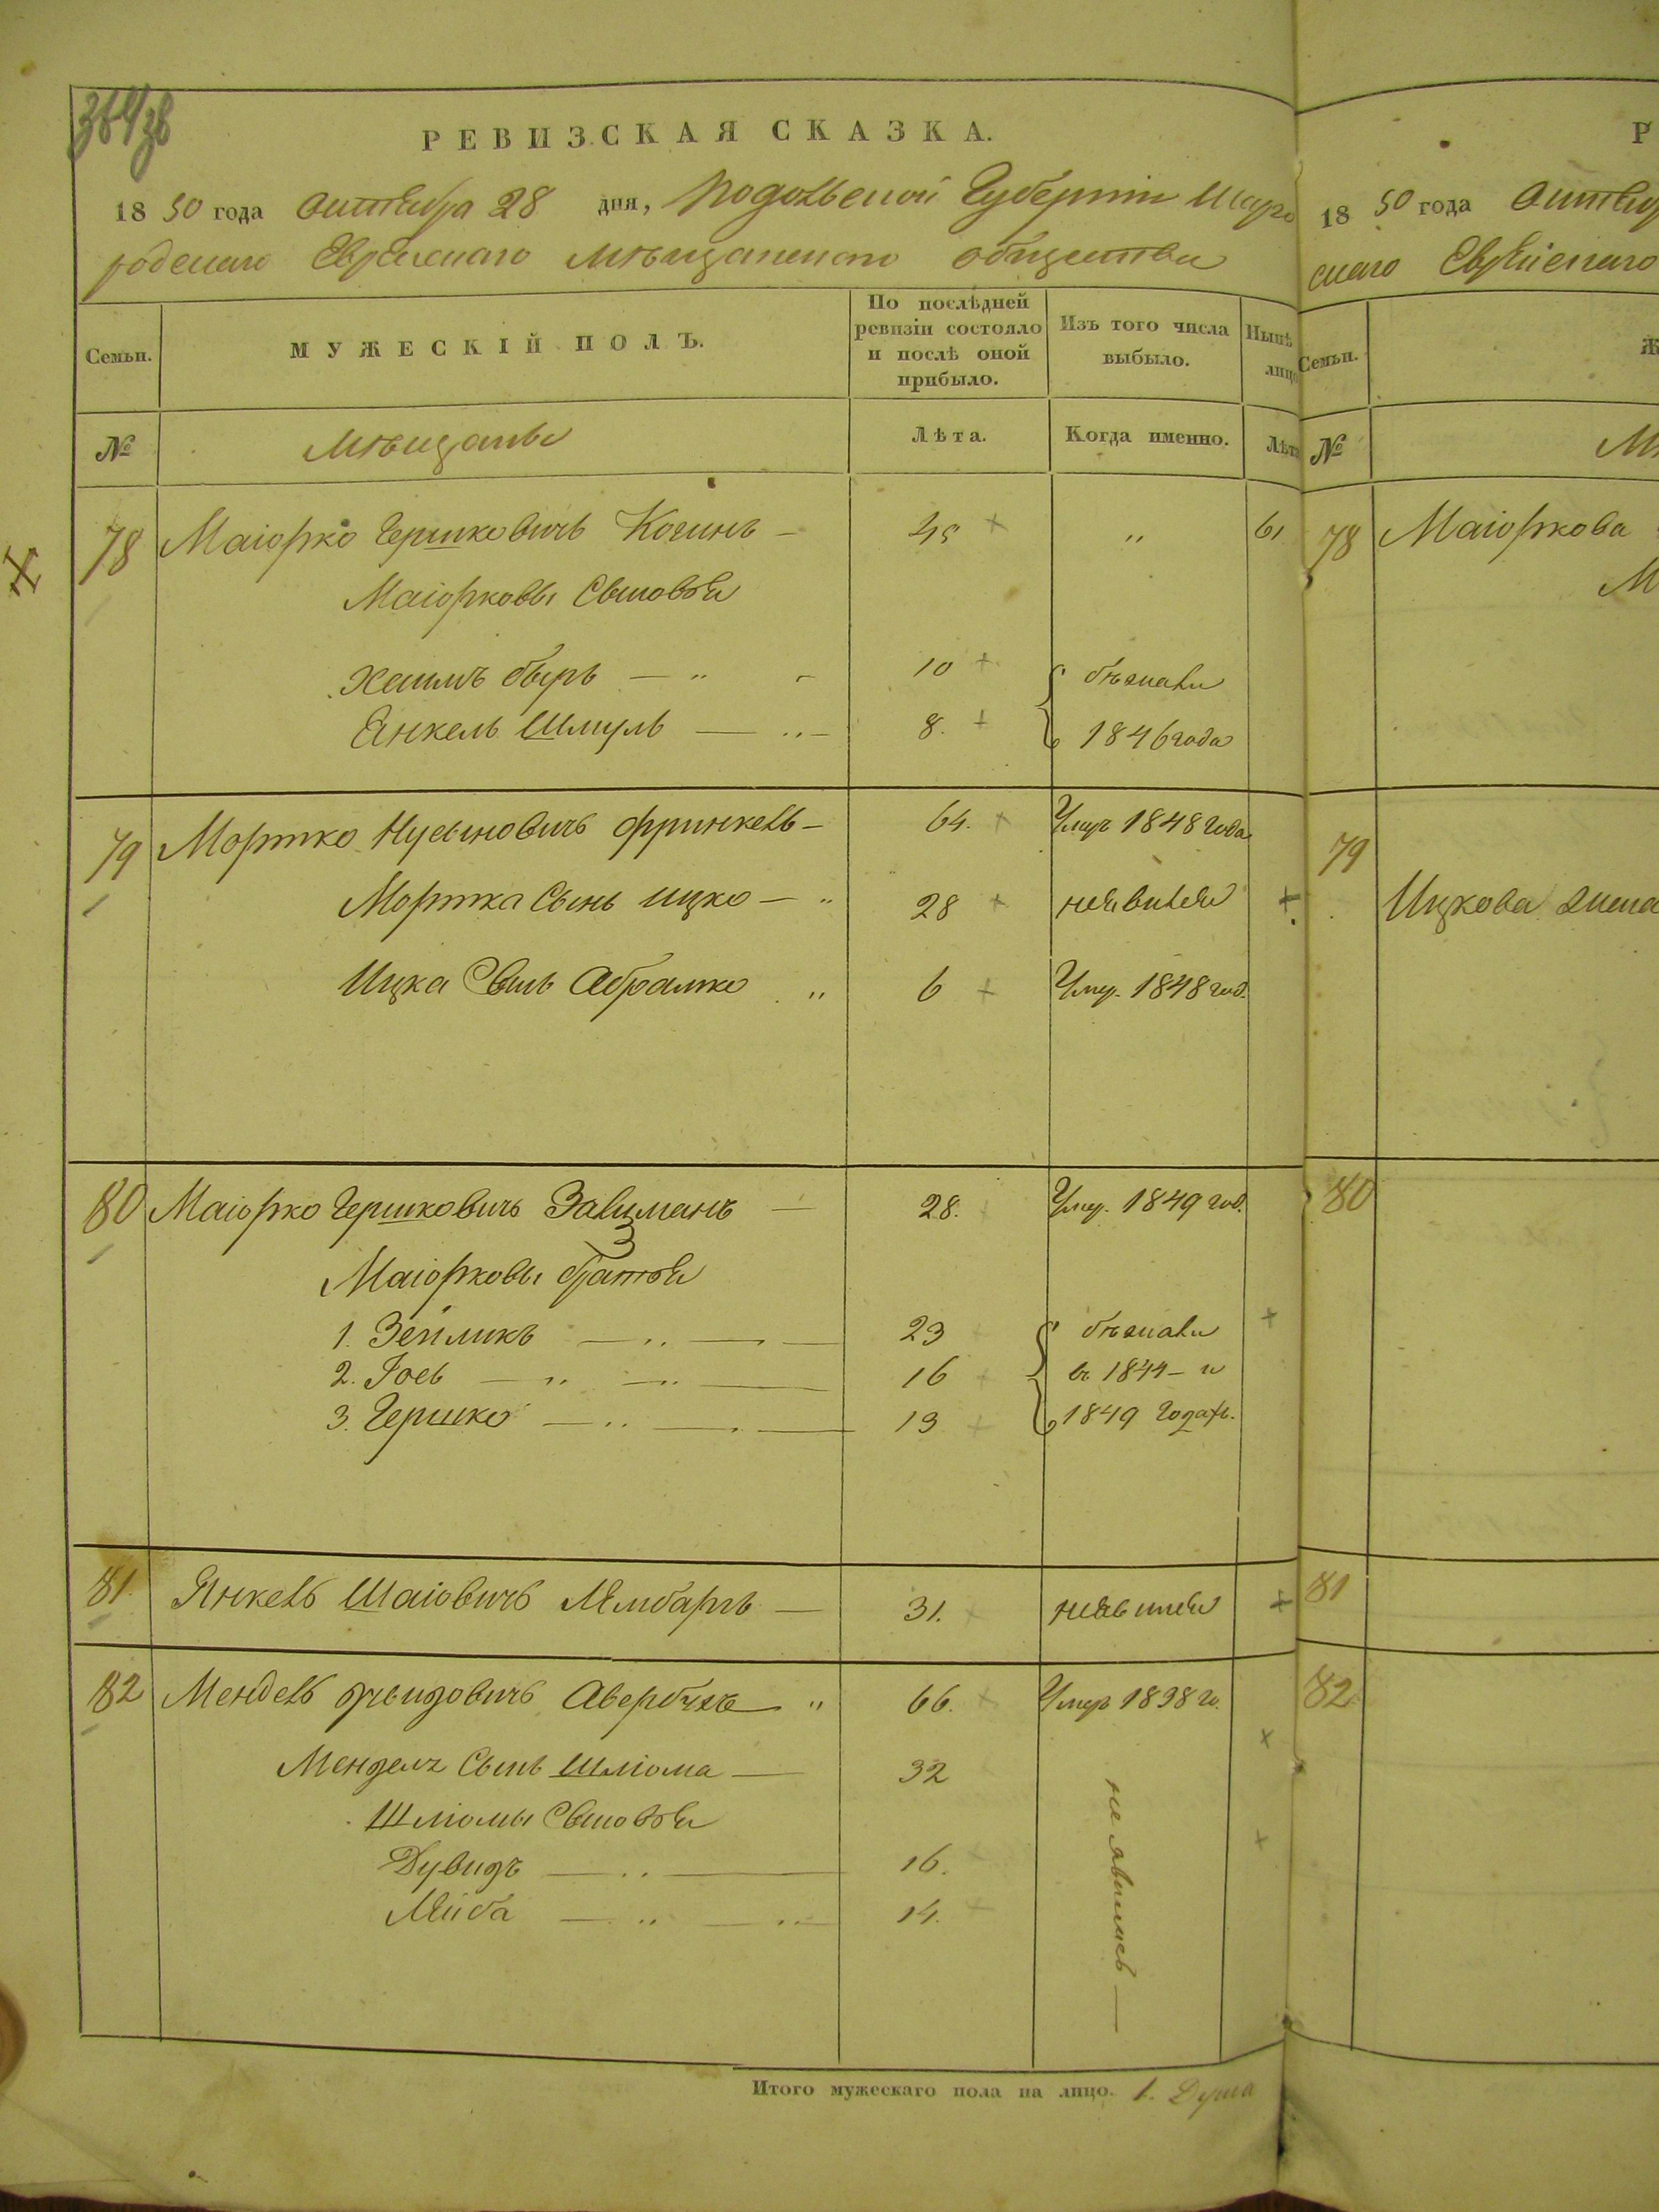 РЕВИЗСКАЯ СКАЗКА.
1850 года Октября 28 дня, Подольской Губернии Шарго
родскаго Еврейскаго мѣщанскаго общества
Семьи.
МУЖЕСКІЙ ПОЛЪ.
По послѣдней ревизіи состояло и послѣ оной прибыло.
Изъ того числа выбыло.
Нынѣ лицо
№
мѣщане
Лѣта.
Когда именно.
Лѣта
78 Маіорко Гершковичъ Коганъ — 45 " 61
Маіорковы Сыновья
Хаимъ Беръ — " - 10 бѣжали
Янкель Шмуль — " - 8. 1846 года
79 Мортко Нусыновичъ Фринкель — 64. Умеръ 1848 года
Мортка Сынъ Ицко — " 28 неявился
Ицка Сынъ Абрамко " 6 Умер. 1848 год.
80 Маіорко Гершковичъ Зальцманъ — 28. Умер. 1849 год.
З
Маіорковы братья
1. Зейликъ — " — 23 бѣжали
2. Іось — " — " — 16 въ 1844 – и
3. Гершко — " — 13 1849 Годахъ.
81. Янкель Шаіовичъ Лямбаргъ — 31. неявился
82 Мендель Дувидовичъ Авербухъ " 66. Умеръ 1838 го.
Менделя Сынъ Шлiома — 32
Шлiомы Сыновья
Дувидъ — " — 16.
Лейба — " — " 14.
не явились —
Итого мужескаго пола на лицо. 1. Душа
Р
1850 года Октяб
скаго Еврейскаго
Семьи.
Ж
№
М
78 Маіоркова
М
79
Ицкова жена
80
81
82